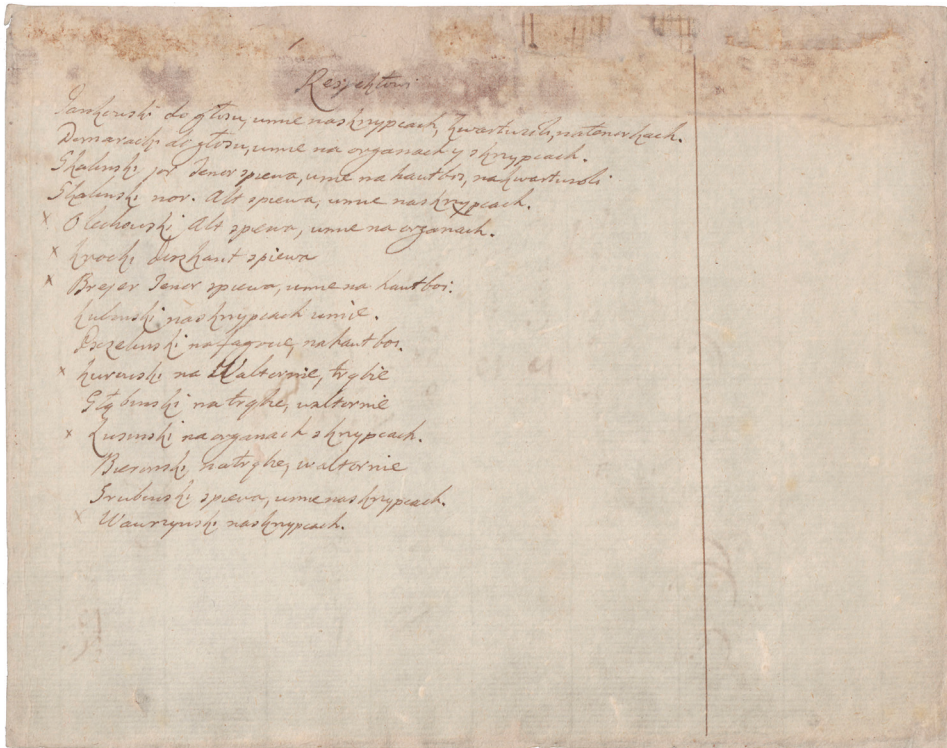 Respektowi
Jankowski do głosu, umie naskrypcach, kwarturoli, natenorkach.
Domaracki do głosu, umie na organach y skrypcach.
Skalinski jor Tenor spiewa, umie nahautbos, nakwarturoli
Skalinski nor. Alt spiewa, umie naskrypcach.
x Olechowski Alt spiewa, umie na organach.
x krocki Diszkant spiewa
x Brejer Tenor spiewa, umie na hautboi.
kulinski naskrypcach umie.
nafagocie, nahautboi.
x kurowski na Waltornie, trąbie
Głębinski natrąbie, waltornie
x Lusinski na organach skrypcach.
natrąbie, waltornie
Grubinski spiewa, umie naskrypcach.
x Wawrzynski naskrypcach.